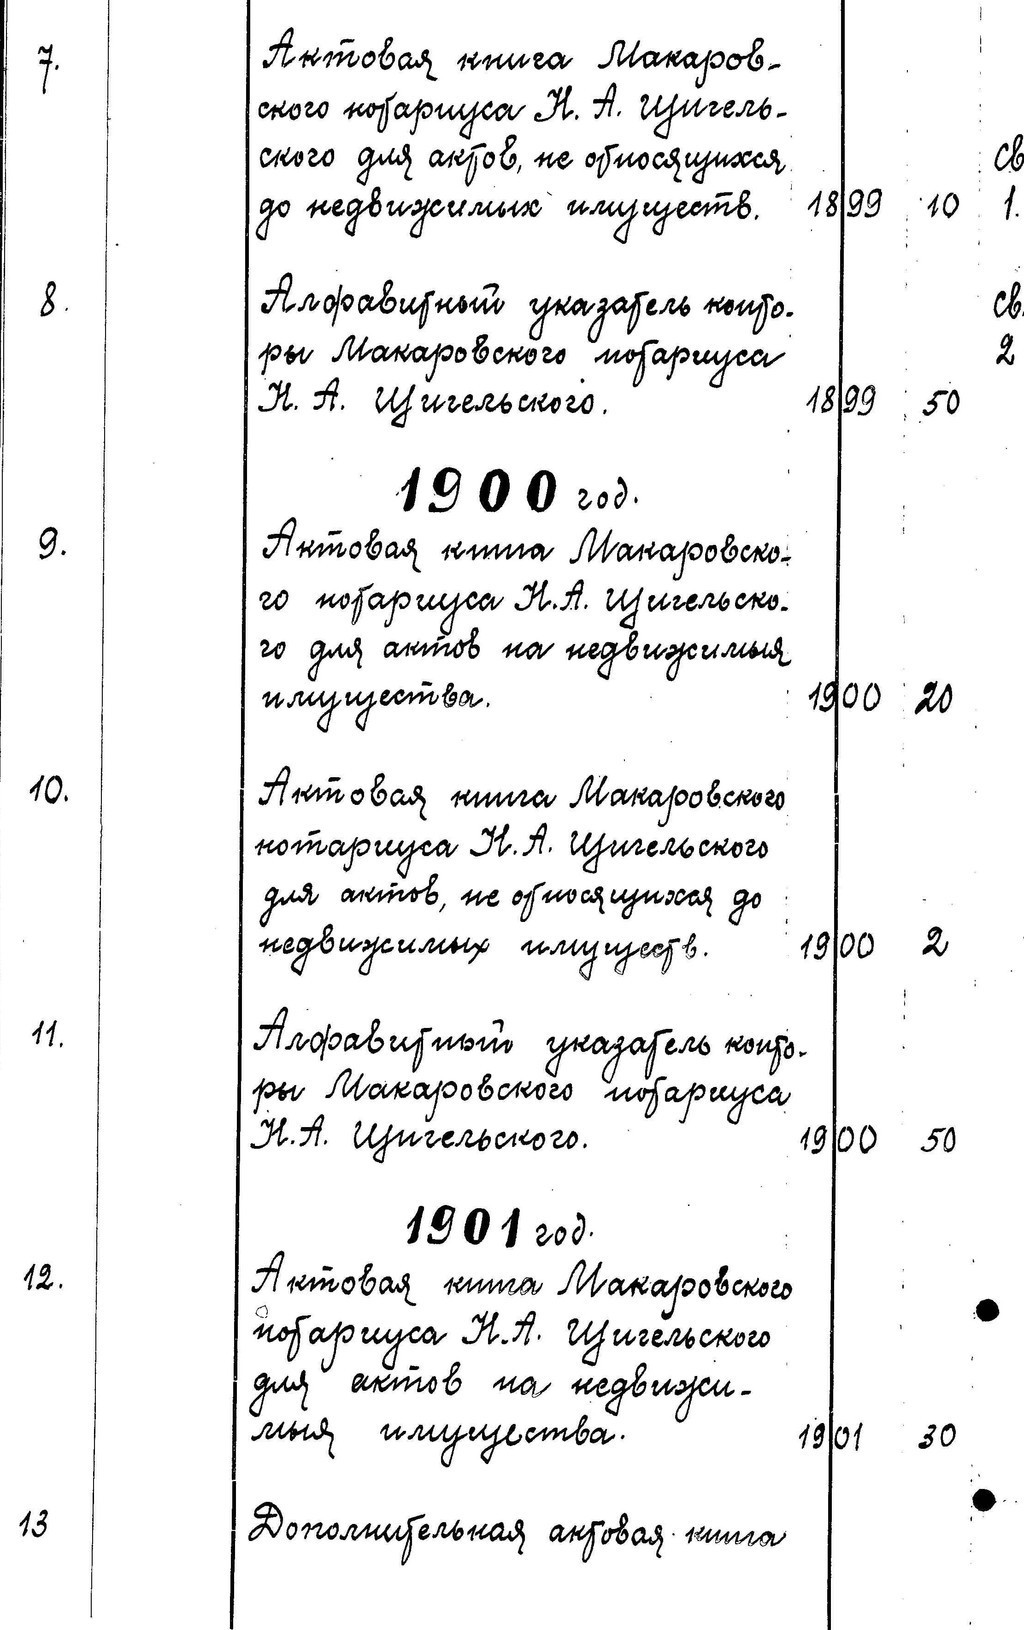 7. Актовая книга Макаров-
ского нотариуса Н. А. Щигель-
ского для актов, не относящихся св
до недвижимых имуществ. 1899 10 1.
8. Алфавитный указатель конто- св.
ры Макаровского нотариуса 2
Н. А. Щигельского. 1899 50
1900 год.
9. Актовая книга Макаровско-
го нотариуса Н. А. Щигельско-
го для актов на недвижимыя
имущества. 1900 20
10. Актовая книга Макаровского
нотариуса Н. А. Щигельского
для актов, не относящихся до
недвижимых имуществ. 1900 2
11. Алфавитный указатель конто-
ры Макаровского нотариуса
Н. А. Щигельского. 1900 50
1901 год.
12. Актовая книга Макаровского
нотариуса Н. А. Щигельского
для актов на недвижи-
мыя имущества. 1901 30
13 Дополнительная актовая книга